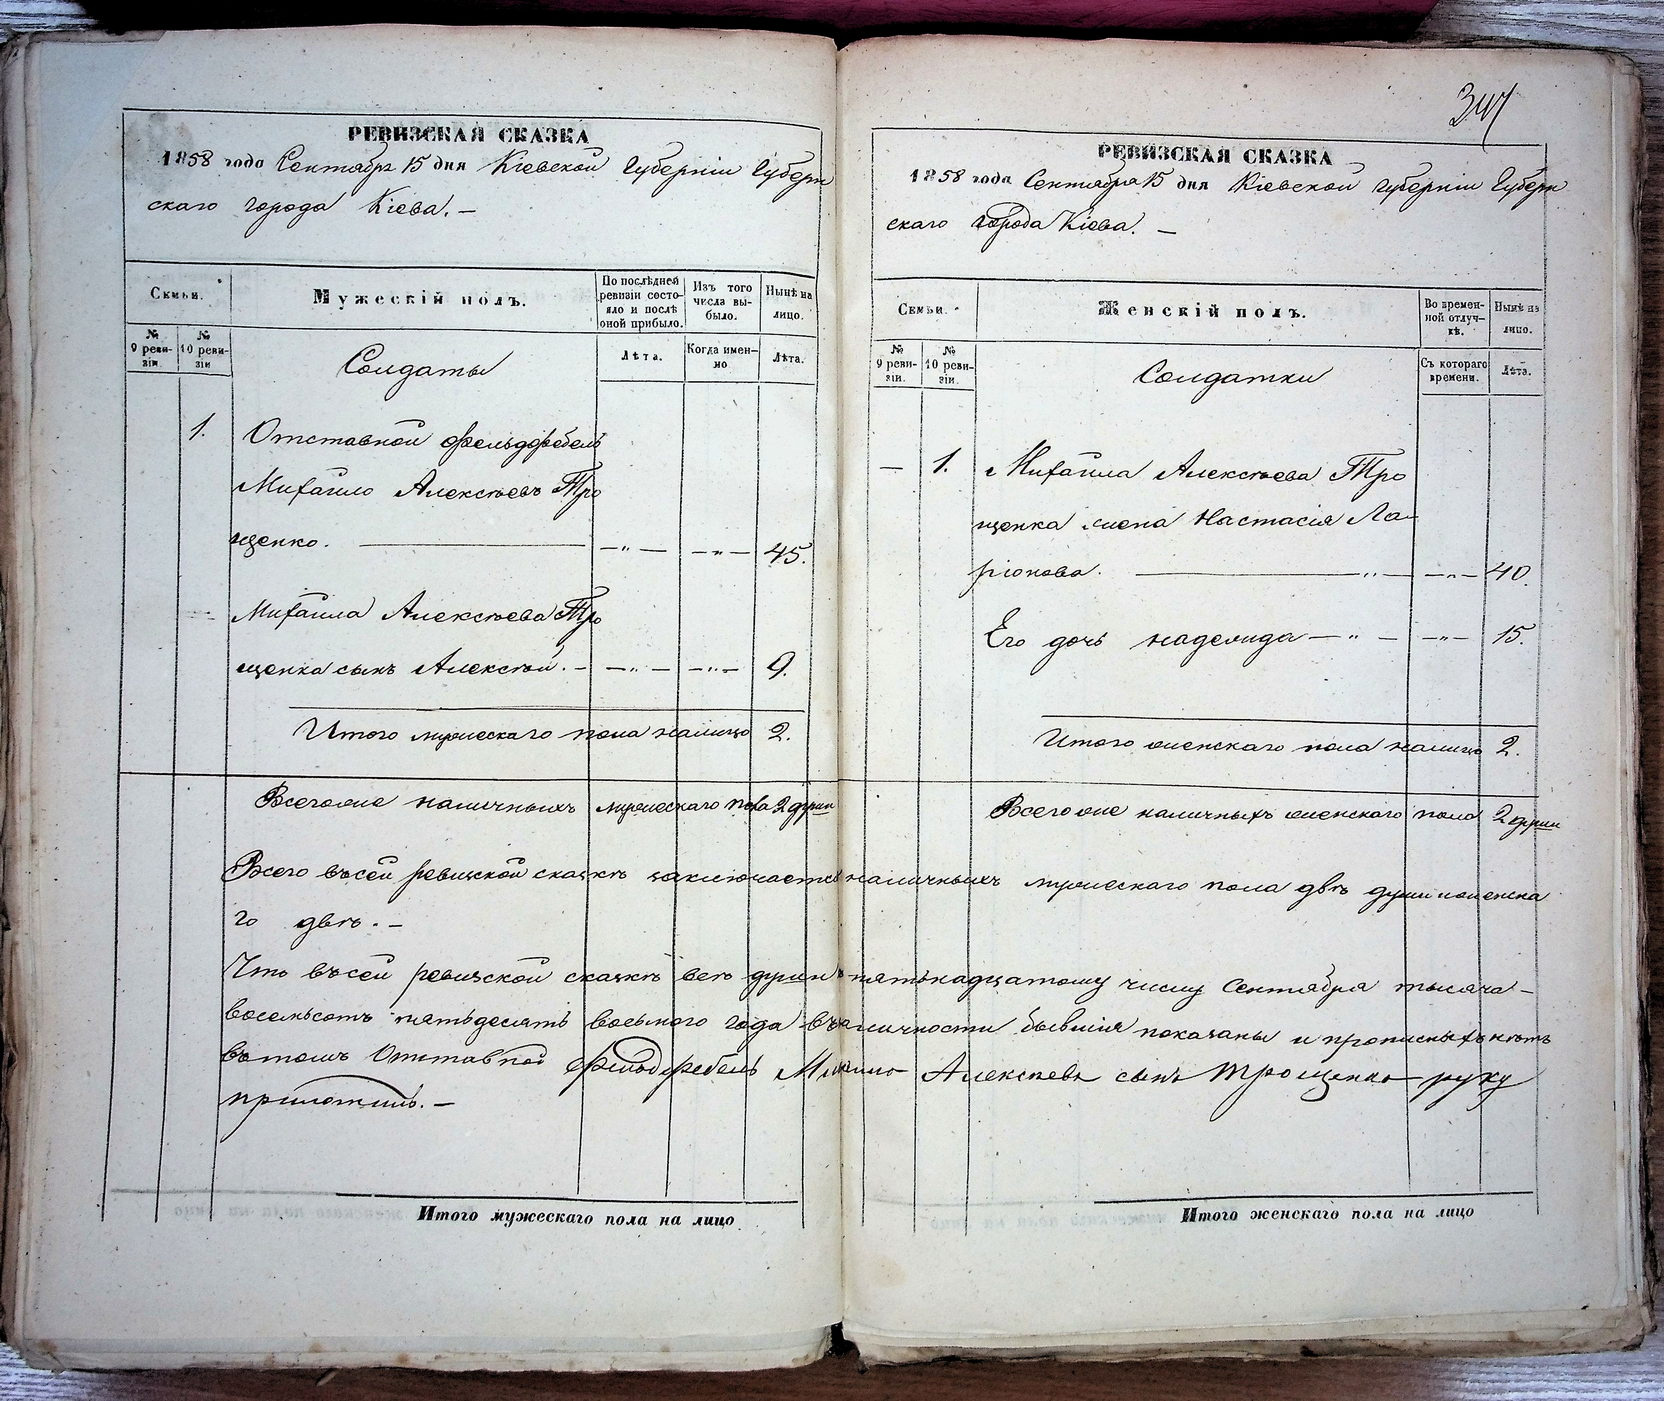 РЕВИЗСКАЯ СКАЗКА
1858 года Сентября 15 дня Кіевской Губерніи Губерн
скаго города Кіева. —
Семьи.
Мужескій полъ.
По послѣдней ревизіи состояло и послѣ оной прибыло.
Изъ того числа выбыло.
Нынѣ на лицо.
№ 9 ревизіи.
№ 10 ревизіи
Лѣта.
Когда именно
Лѣта.
Солдаты
1. Отставной фельдфебель
Михаило Алексѣевъ Тро
щенко. — — „ — — „ — 45.
Михаила Алексѣева Тро
щенка сынъ Алексѣй. — — „ — — „ — 9.
Итого мужескаго пола налицо 2.
Всего же наличныхъ мужескаго пола 2 души
347
РЕВИЗСКАЯ СКАЗКА
1858 года Сентября 15 дня Кіевской губерніи Губерн
скаго города Кіева. —
Семьи.
Женскій полъ.
Во временной отлучкѣ.
Нынѣ на лицо.
№ 9 ревизіи.
№ 10 ревизіи.
Съ котораго времени.
Лѣта.
Солдатки
— 1. Михаила Алексѣева Тро
щенка жена Настасія Ла-
ріонова. — „ — — „ — 40.
Его дочь надежида — „ — — „ — 15.
Итого женскаго пола налицо 2.
Всего же наличныхъ женскаго пола 2 души
Всего въсей ревизской сказкѣ заключается наличныхъ мужескаго пола двѣ души и женска
го двѣ. —
Что въсей ревизской сказкѣ всѣ души къ пятьнадцатому числу Сентября тысяча —
восемьсотъ пятьдесятъ восьмого года въналичности бывшія показаны и прописныхъ нѣтъ
въ томъ Отставной фельдфебель Михаило Алексѣевъ сынъ Трощенко руку
приложилъ. —
Итого мужескаго пола на лицо
Итого женскаго пола на лицо